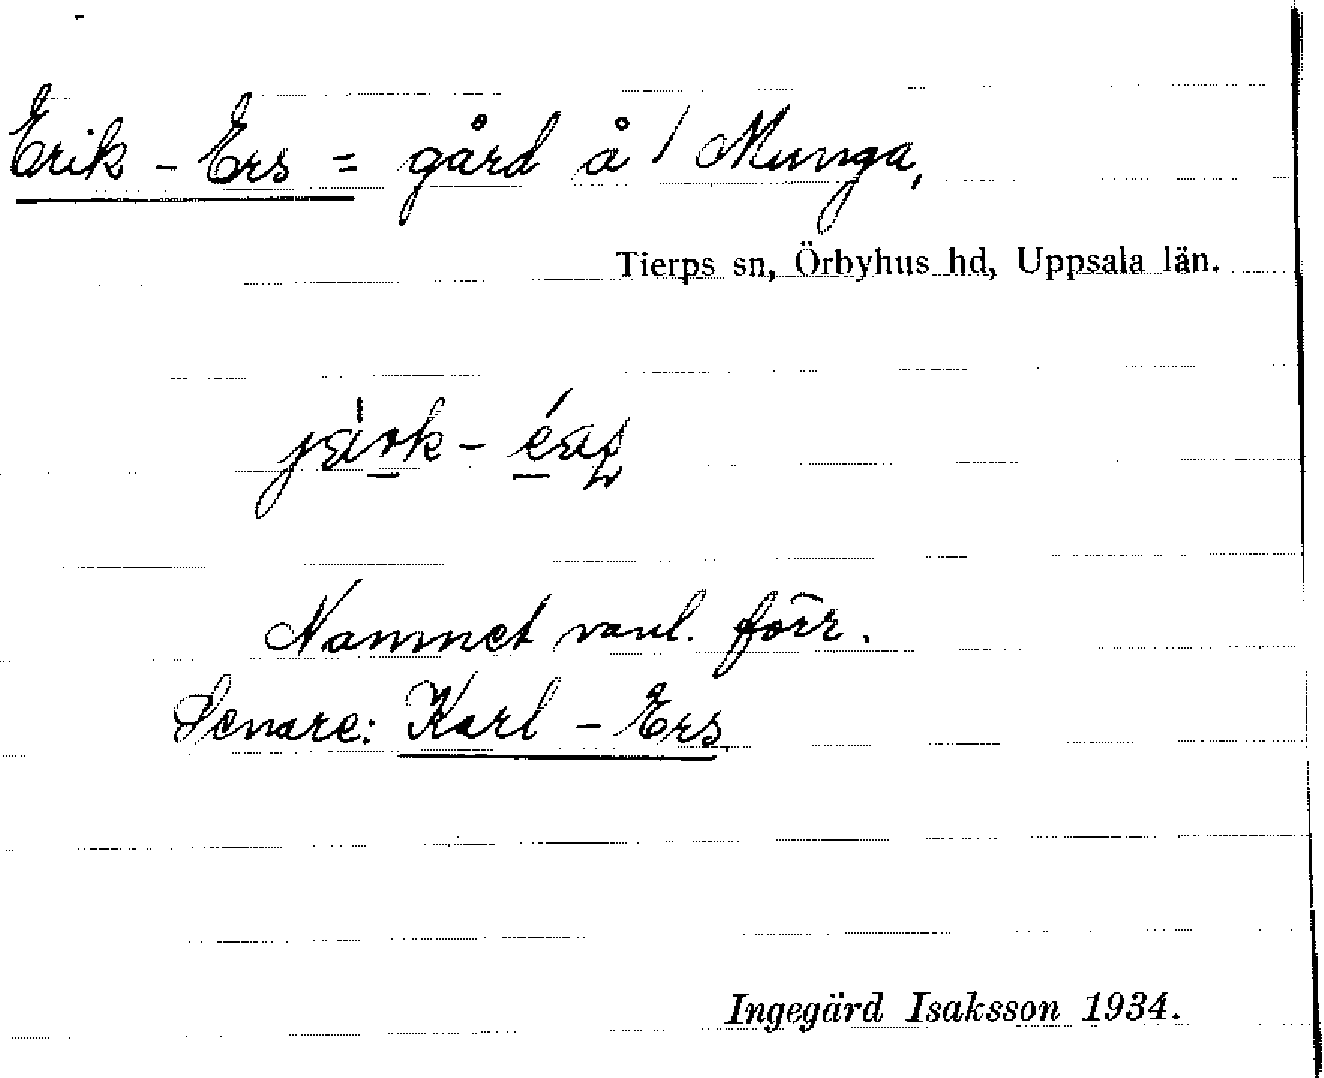 Erik - Ers = gård å / Munga,
Tierps sn, Örbyhus hd, Uppsala län.
Namnet vanl. förr.
Senare: Karl - Ers
Ingegärd Isaksson 1934.